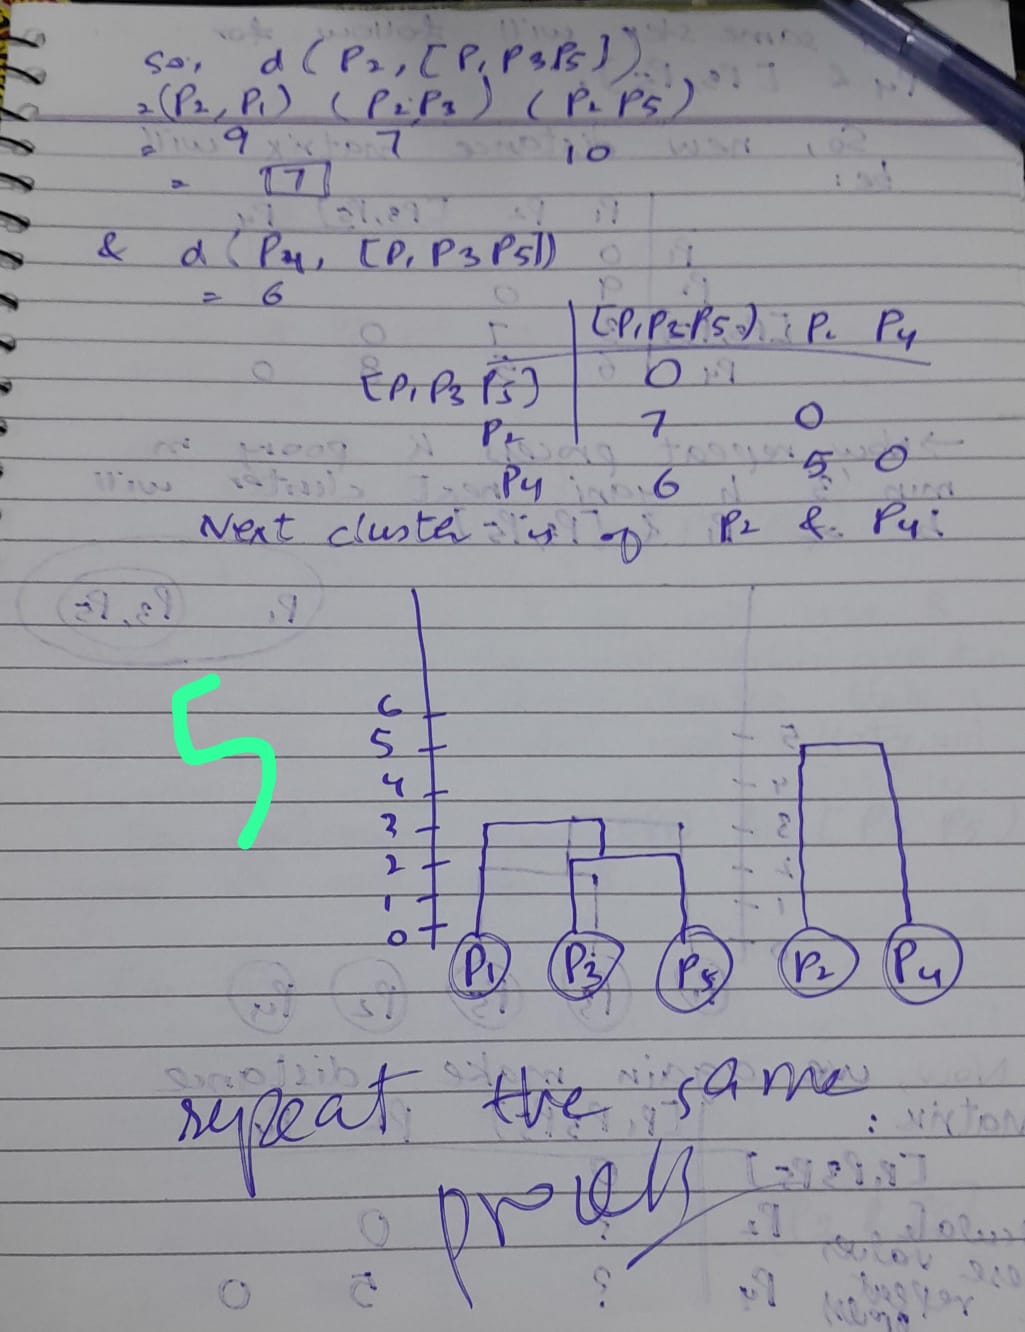 So, d(P2, [P1P3P5])
=(P2, P1) (P2P3) (P2 P5)
= 9 7 10
= [7]
& d(P4, [P1 P3 P5])
= 6
[P1P2P5] P2 P4
[P1P3P5] 0
P2 7 0
P4 6 5 0
Next cluster is of P2 & P4:
5
6
5
4
3
2
1
0
P1 P3 P5 P2 P4
repeat the same